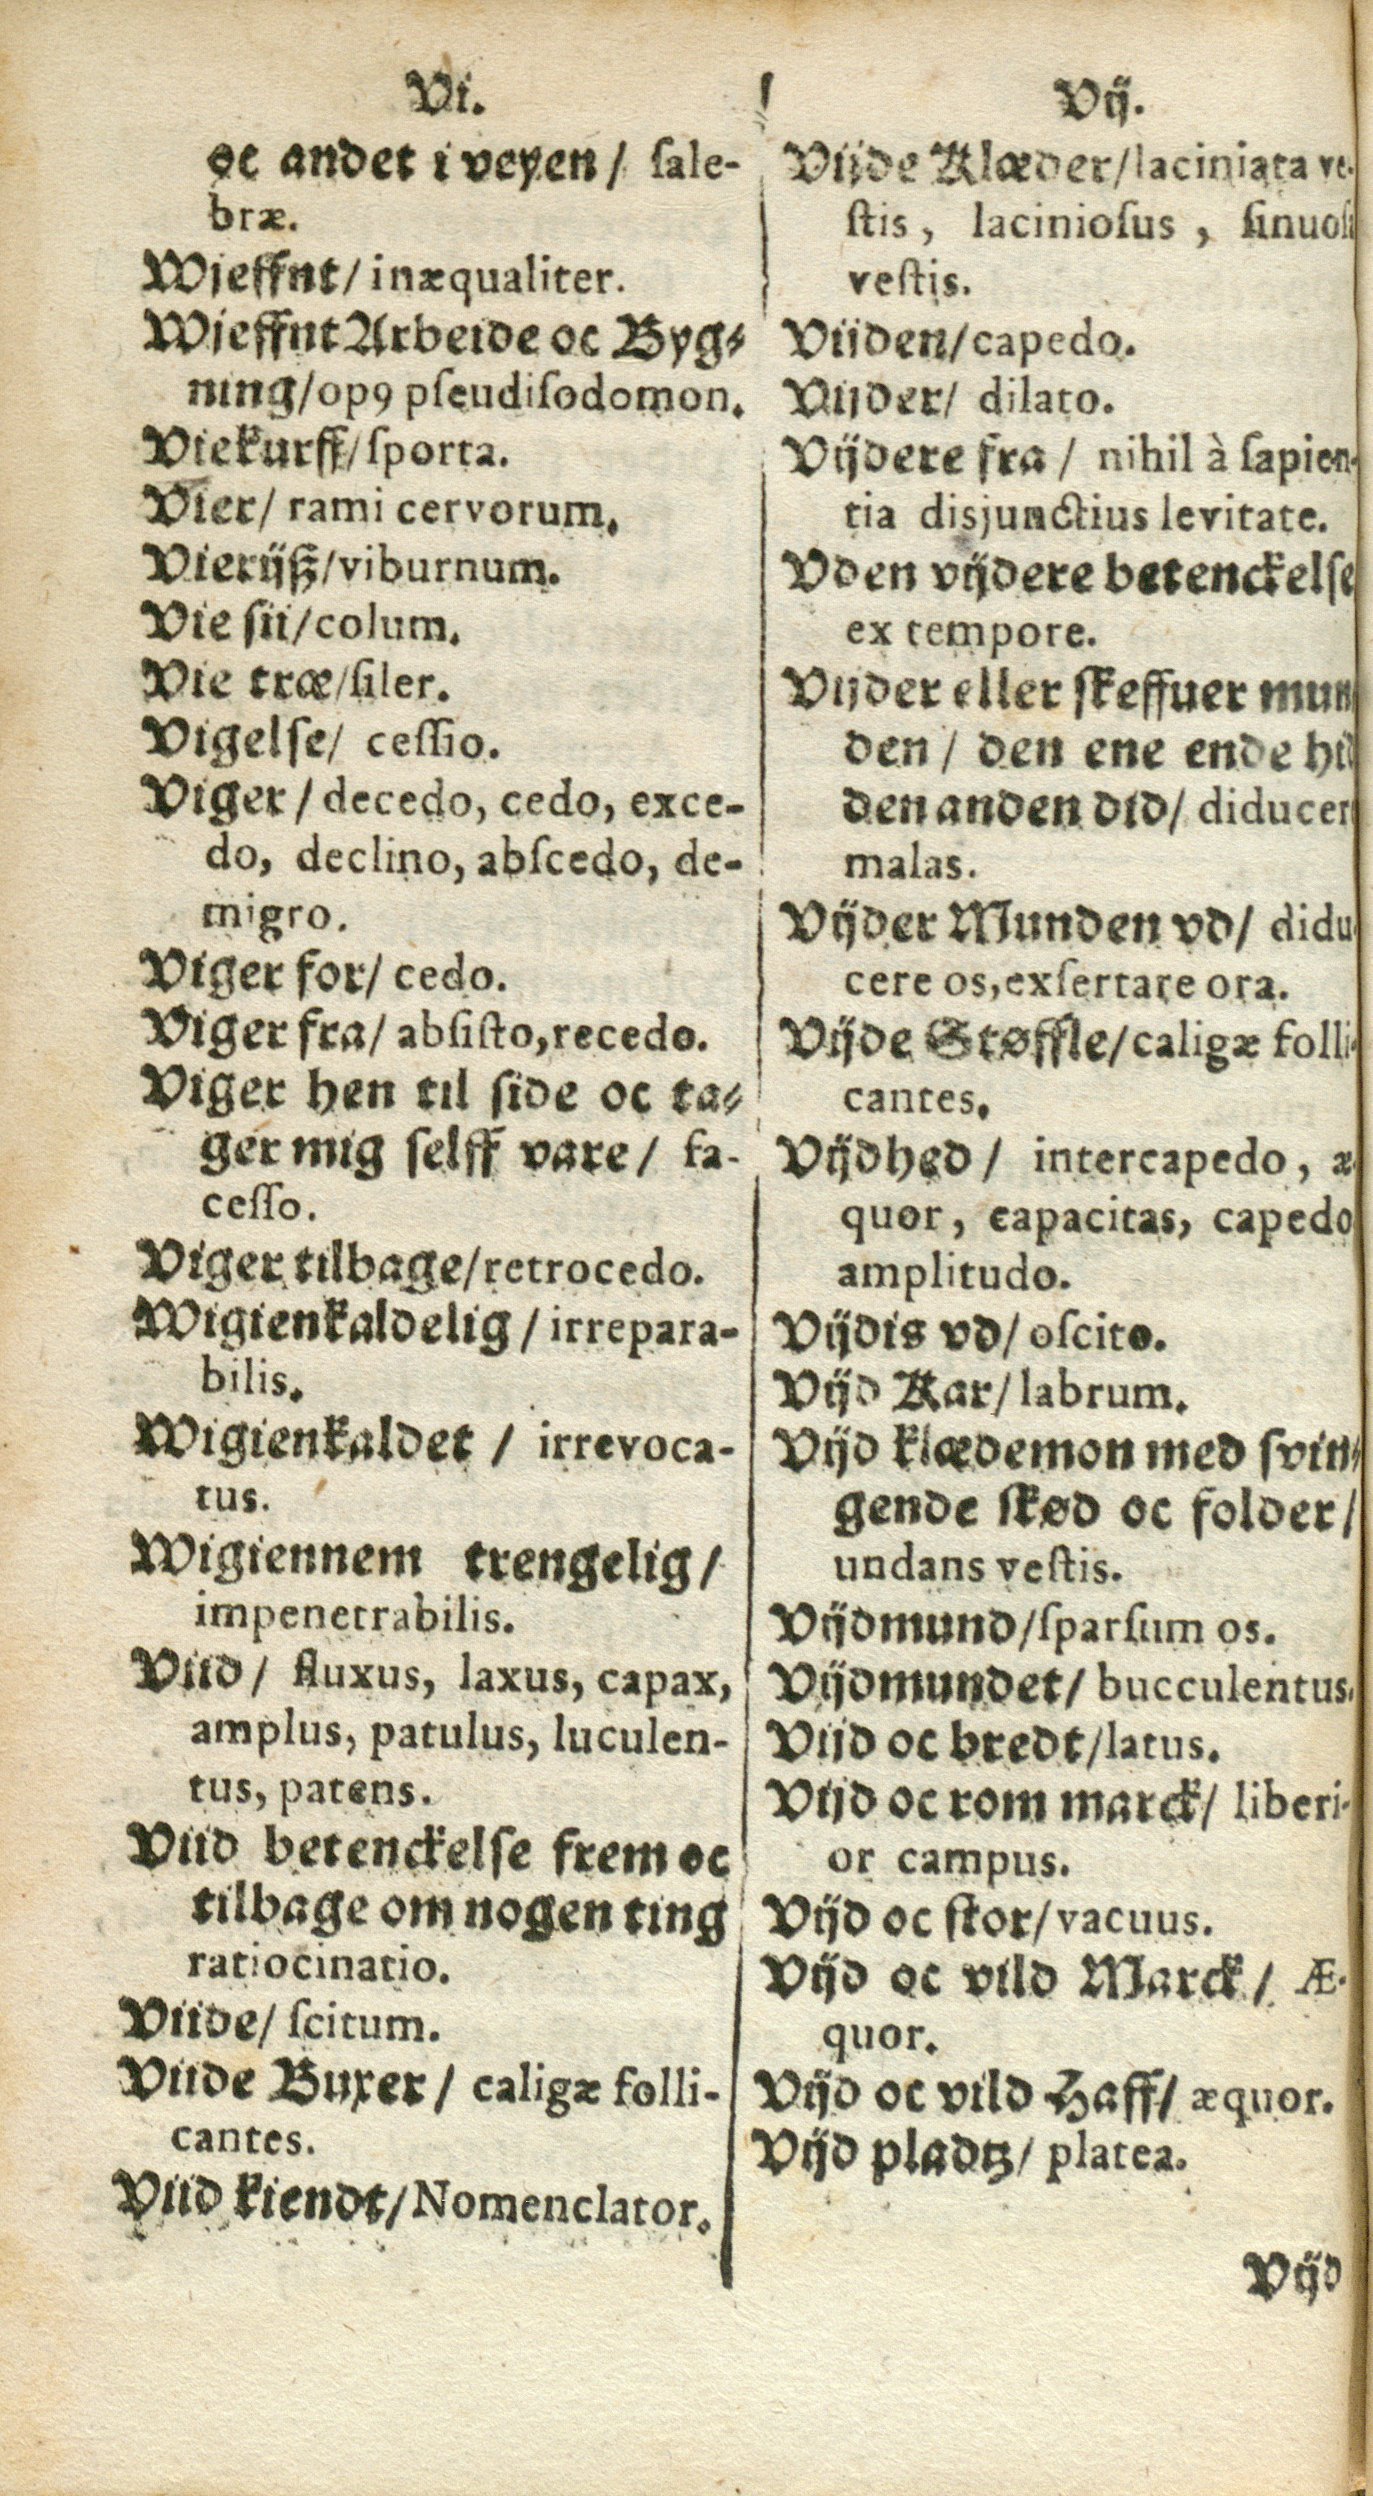 Vi.
oc andet i veyen / ſale-
bræ.
Wjeffnt / inæqualiter.
Wjeffnt Arbeide oc Byg⸗
ning / opꝰ pſeudiſodomon.
Viekurff / ſporta.
Vier / rami cervorum.
Vierijß / viburnum.
Vie ſii / colum.
Vie træ / ſiler.
Vigelſe / ceſſio.
Viger / decedo, cedo, exce-
do, declino, abſcedo, de-
migro.
Viger for / cedo.
Viger fra / abſiſto, recedo.
Viger hen til ſide oc ta⸗
ger mig ſelff vare / fa-
ceſſo.
Viger tilbage / retrocedo.
Wigienkaldelig / irrepara-
bilis.
Wigienkaldet / irrevoca-
tus.
Wigiennem trengelig /
impenetrabilis.
Viid / fluxus, laxus, capax,
amplus, patulus, luculen-
tus, patens.
Viid betenckelſe frem oc
tilbage om nogen ting
ratiocinatio.
Viide / ſcitum.
Viide Buxer / caligæ folli-
cantes.
Viid kiendt / Nomenclator.
Vij.
Vijde Klæder / laciniata ve-
ſtis, lacinioſus, ſinuoſ
veſtis.
Vijden / capedo.
Vijder / dilato.
Vijdere fra / nihil à ſapien-
tia disjunctius levitate.
Vden vijdere betenckelſe
ex tempore.
Vijder eller ſkeffuer mun
den / den ene ende hid
den anden did / diducer
malas.
Vijder Munden vd / didu-
cere os, exſertare ora.
Vijde Støffle / caligæ folli-
cantes.
Vijdhed / intercapedo, æ-
quor, capacitas, capedo
amplitudo.
Vijdis vd / oſcito.
Vijd Kar / labrum.
Vijd klædemon med ſvin⸗
gende ſkød oc folder /
undans veſtis.
Vijdmund / ſparſum os.
Vijdmundet / bucculentus.
Vijd oc bredt / latus.
Vijd oc rom marck / liberi-
or campus.
Vijd oc ſtor / vacuus.
Vijd oc vild Marck / Æ-
quor.
Vijd oc vild Haff / æquor.
Vijd pladtz / platea.
Vijd